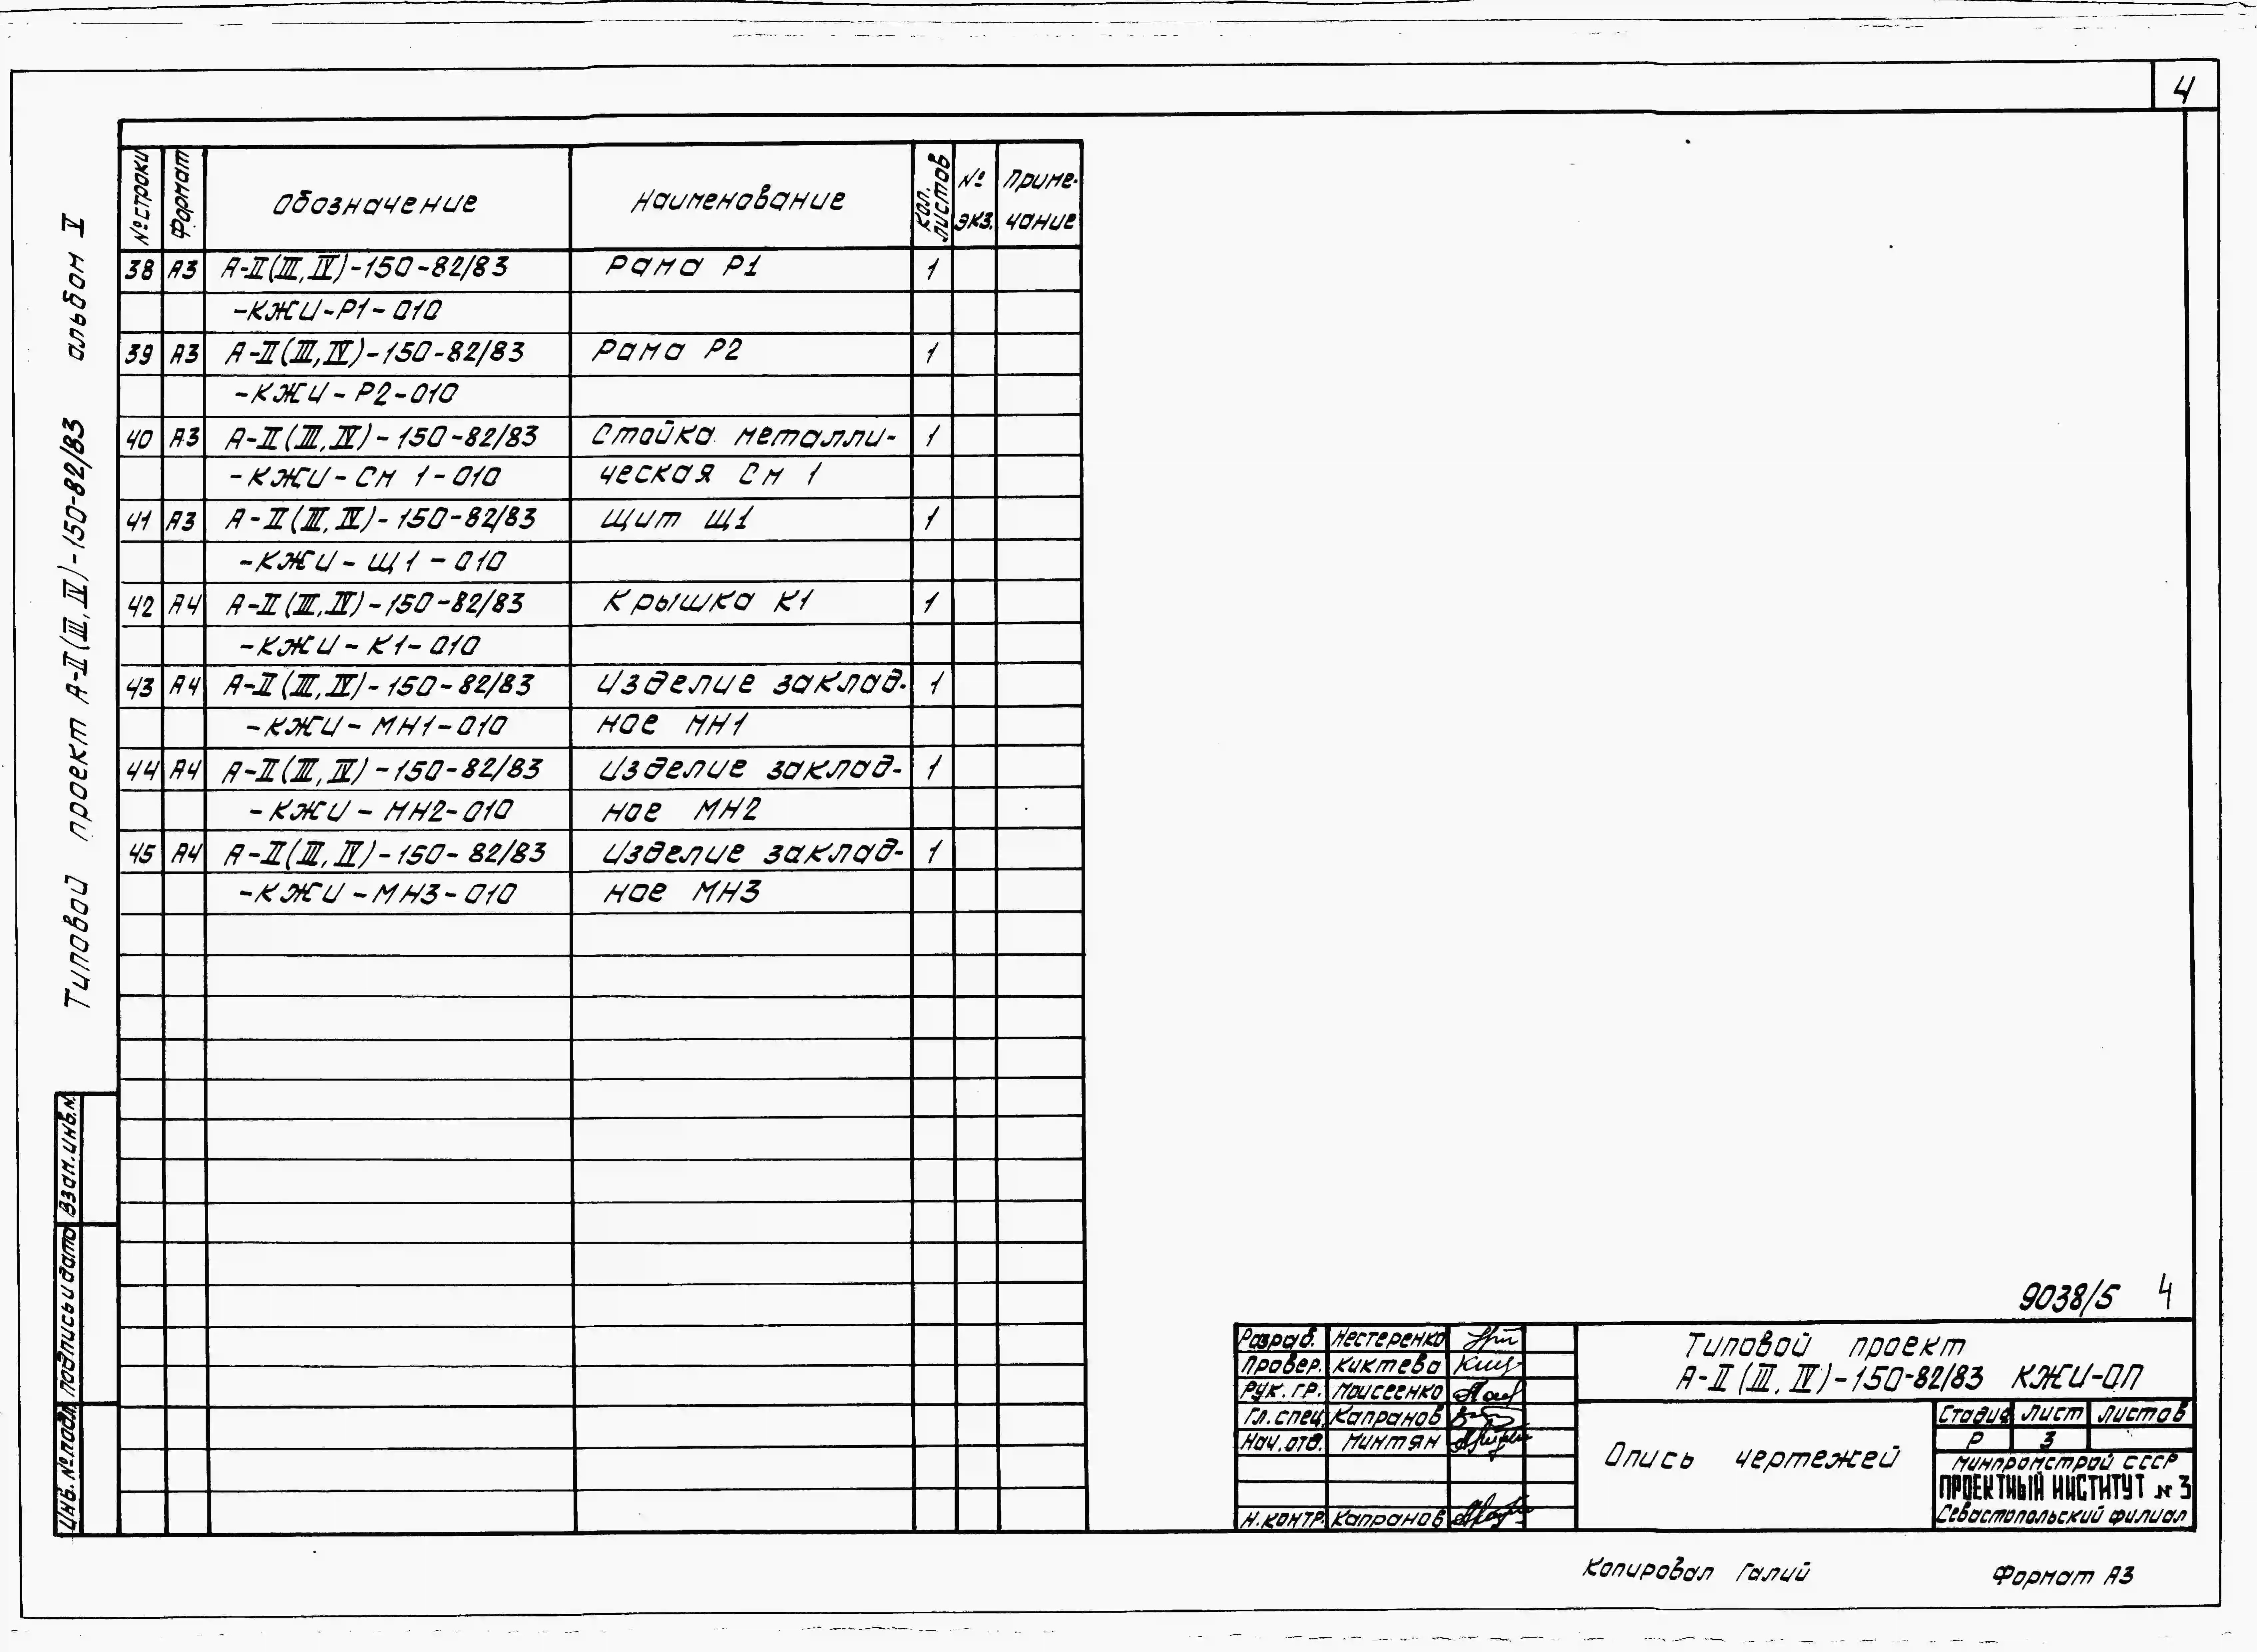 4
Типовой проект А-II(III,IV)-150-82/83 альбом V
№ строки Формат Обозначение Наименование Кол. листов № экз. Приме-чание
38 А3 А-II(III,IV)-150-82/83 Рама Р1 1
-КЖИ-Р1-010
39 А3 А-II(III,IV)-150-82/83 Рама Р2 1
-КЖИ-Р2-010
40 А3 А-II(III,IV)-150-82/83 Стойка металли- 1
-КЖИ-СМ 1-010 ческая См 1
41 А3 А-II(III,IV)-150-82/83 Щит Щ1 1
-КЖИ-Щ1-010
42 А4 А-II(III,IV)-150-82/83 Крышка К1 1
-КЖИ-К1-010
43 А4 А-II(III,IV)-150-82/83 Изделие заклад- 1
-КЖИ-МН1-010 ное МН1
44 А4 А-II(III,IV)-150-82/83 Изделие заклад- 1
-КЖИ-МН2-010 ное МН2
45 А4 А-II(III,IV)-150-82/83 Изделие заклад- 1
-КЖИ-МН3-010 ное МН3
Взам.инв.№
Подпись и дата
Инв.№ подл.
9038/5 4
Разраб. Нестеренко
Провер. Киктева
Рук.гр. Моисеенко
Гл.спец. Капранов
Нач.отд. Минтян
Н.контр. Капранов
Типовой проект
А-II(III,IV)-150-82/83 КЖИ-ОП
Опись чертежей
Стадия Лист Листов
Р 3
Минпромстрой СССР
ПРОЕКТНЫЙ ИНСТИТУТ № 3
Севастопольский филиал
Копировал Галий Формат А3